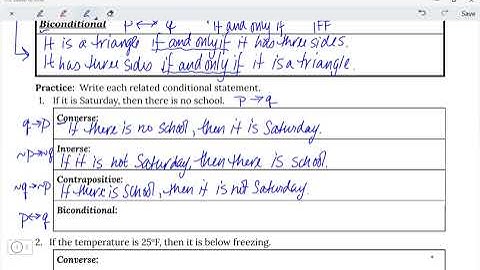 Save
Biconditional P ↔ q "If and only if IFF
It is a triangle if and only if it has three sides.
It has three sides if and only if it is a triangle.
Practice: Write each related conditional statement.
1. If it is Saturday, then there is no school. P → q
q→p Converse:
If there is no school, then it is Saturday.
~p→~q Inverse:
If it is not Saturday, then there is school.
Contrapositive:
~q→~p If there is school, then it is not Saturday.
p↔q Biconditional:
2. If the temperature is 25°F, then it is below freezing.
Converse: